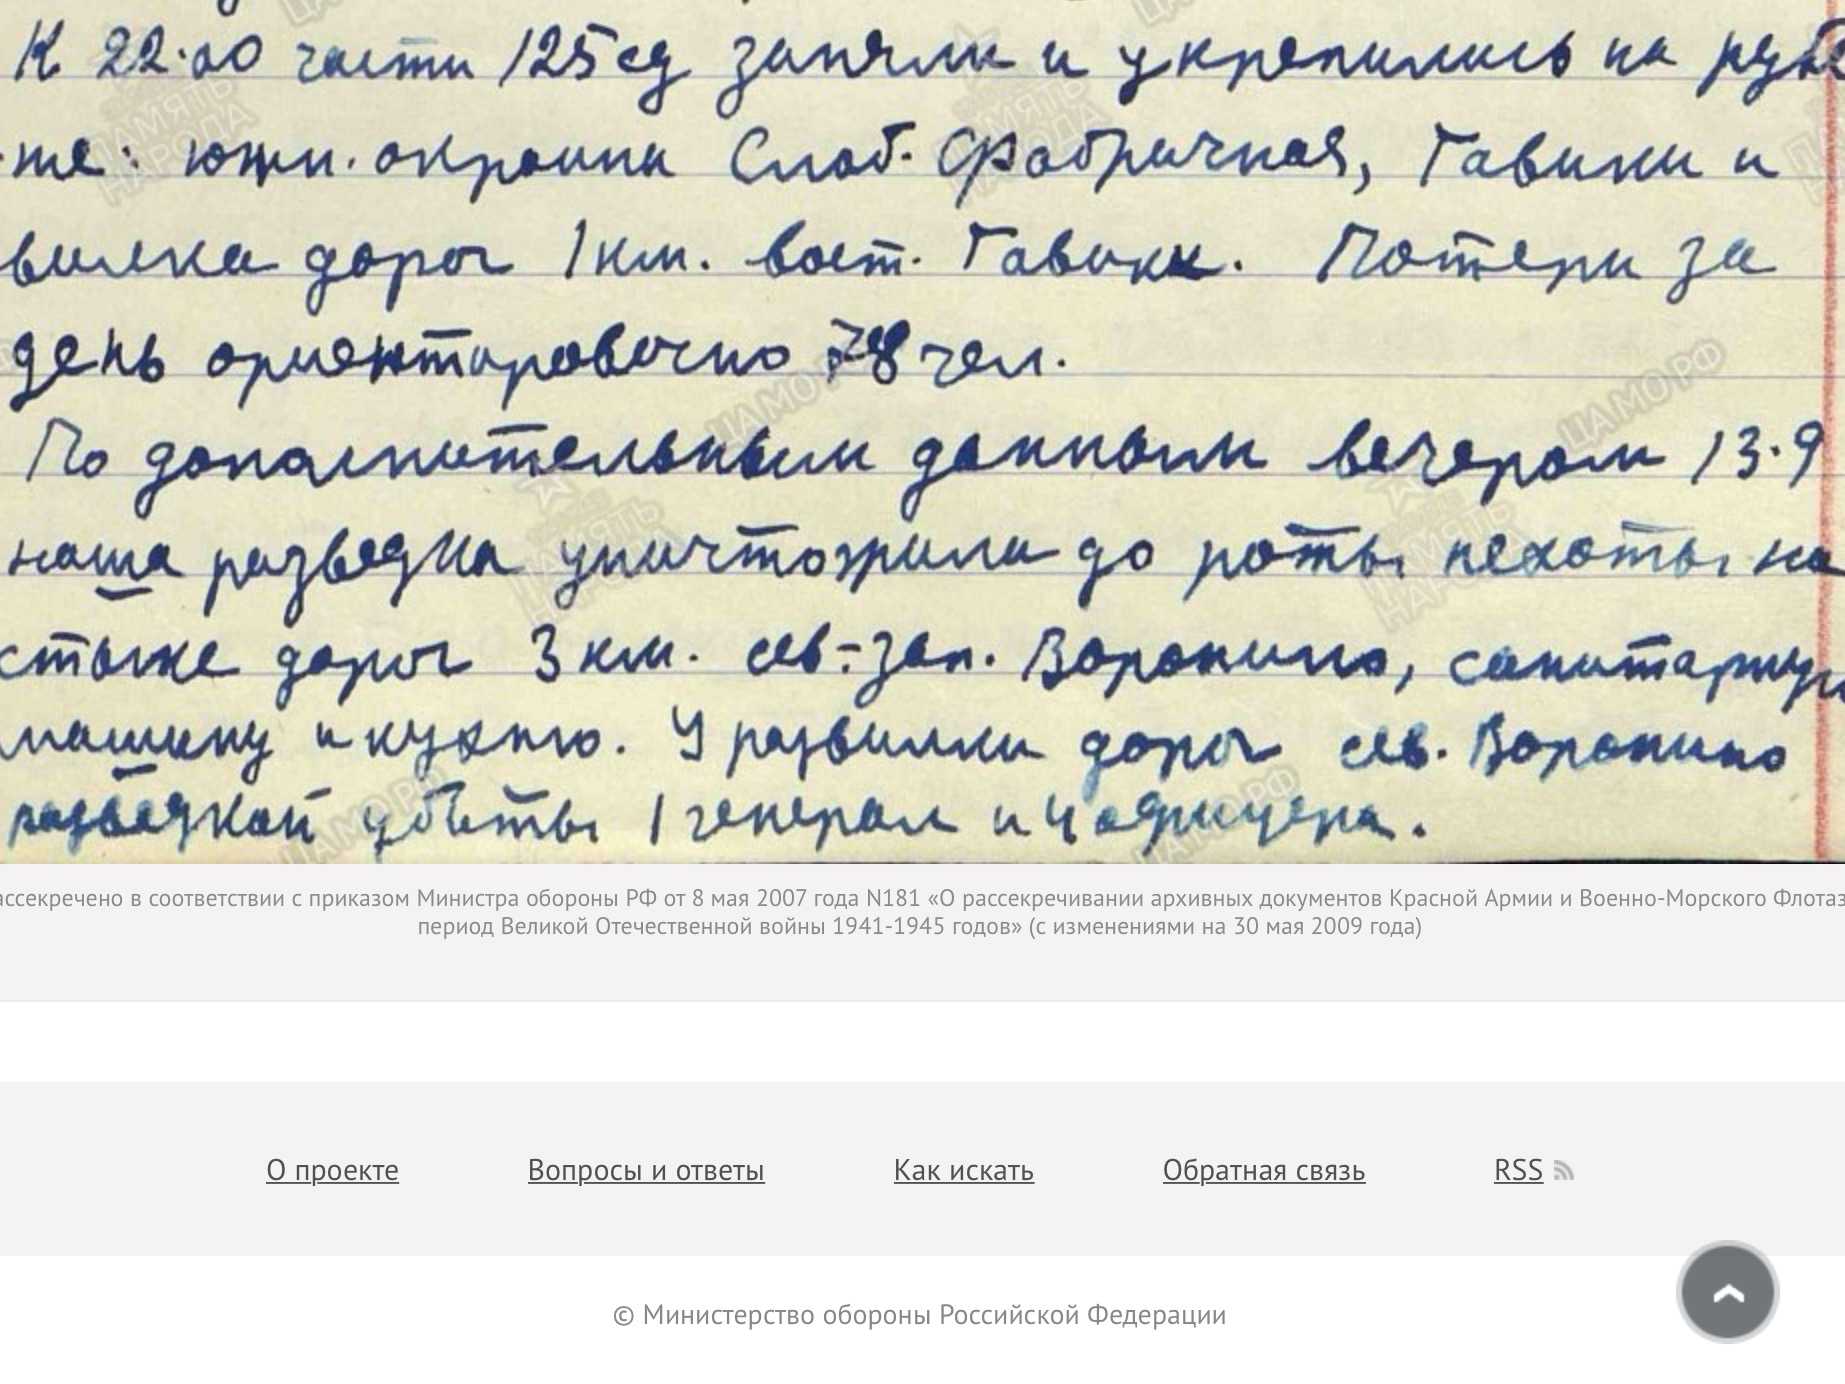 К 22.00 части 125 сд заняли и укрепились на рубе-
же: южн. окраина Слоб. Фабричная, Гавики и
вилка дорог 1 км. вост. Гавики. Потери за
день ориентировочно 78 чел.
По дополнительным данным вечером 13.9
наша разведка уничтожила до роты пехоты на
стыке дорог 3 км. сев.-зап. Воронино, санитарную
машину и кухню. У развилки дорог сев. Воронино
разведкой убиты 1 генерал и 4 офицера.
ассекречено в соответствии с приказом Министра обороны РФ от 8 мая 2007 года N181 «О рассекречивании архивных документов Красной Армии и Военно-Морского Флота з
период Великой Отечественной войны 1941-1945 годов» (с изменениями на 30 мая 2009 года)
О проекте Вопросы и ответы Как искать Обратная связь RSS
© Министерство обороны Российской Федерации